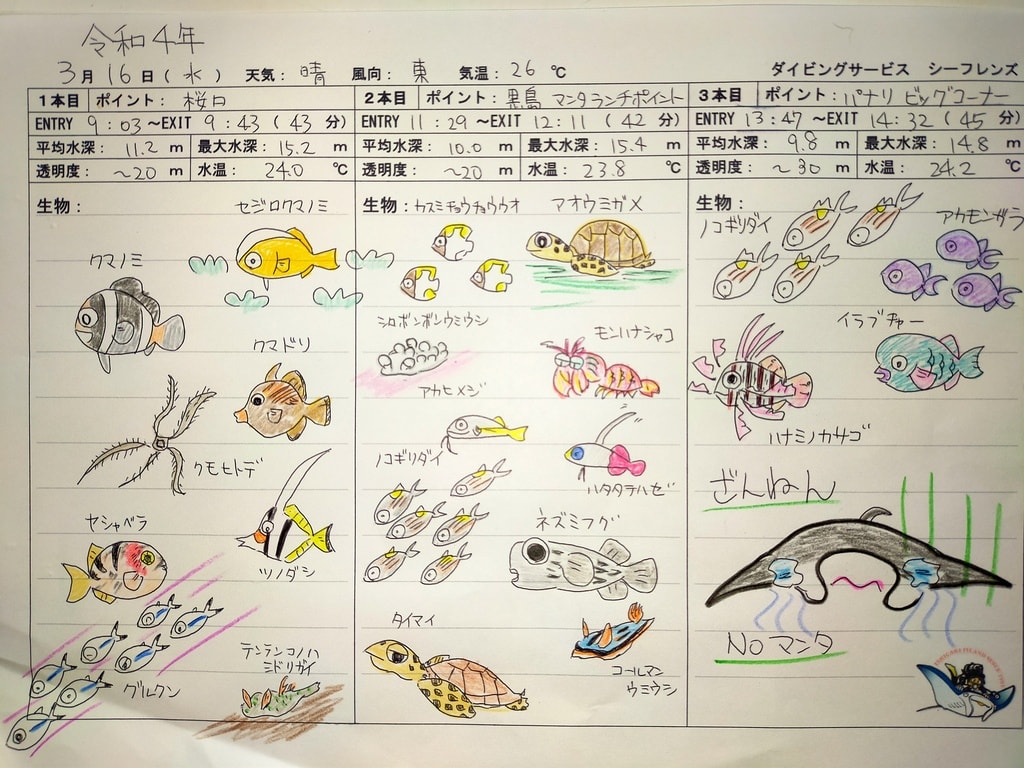 令和4年
3月16日(水) 天気:晴 風向:東 気温:26℃ ダイビングサービス シーフレンズ
1本目 ポイント:桜口
ENTRY 9:03~EXIT 9:43(43分)
平均水深:11.2m 最大水深:15.2m
透明度:~20m 水温:24.0℃
生物:
セジロクマノミ
クマノミ
クマドリ
クモヒトデ
ヤシャベラ
ツノダシ
グルクン
テンテンコノハ
ミドリガイ
2本目 ポイント:黒島 マンタランチポイント
ENTRY 11:29~EXIT 12:11(42分)
平均水深:10.0m 最大水深:15.4m
透明度:~20m 水温:23.8℃
生物:カスミチョウチョウウオ アオウミガメ
シロボンボンウミウシ
モンハナシャコ
アカヒメジ
ノコギリダイ
ハタタテハゼ
ネズミフグ
タイマイ
コールマン
ウミウシ
3本目 ポイント:パナリ ビッグコーナー
ENTRY 13:47~EXIT 14:32(45分)
平均水深:9.8m 最大水深:14.8m
透明度:~30m 水温:24.2℃
生物:
ノコギリダイ
アカモンガラ
イラブチャー
ハナミノカサゴ
ざんねん
Noマンタ